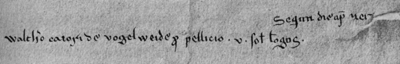 Sequn die ap̄ Zei
walth'o cātori de vogelweide ꝓ pellicio . v . sol' lōgos.